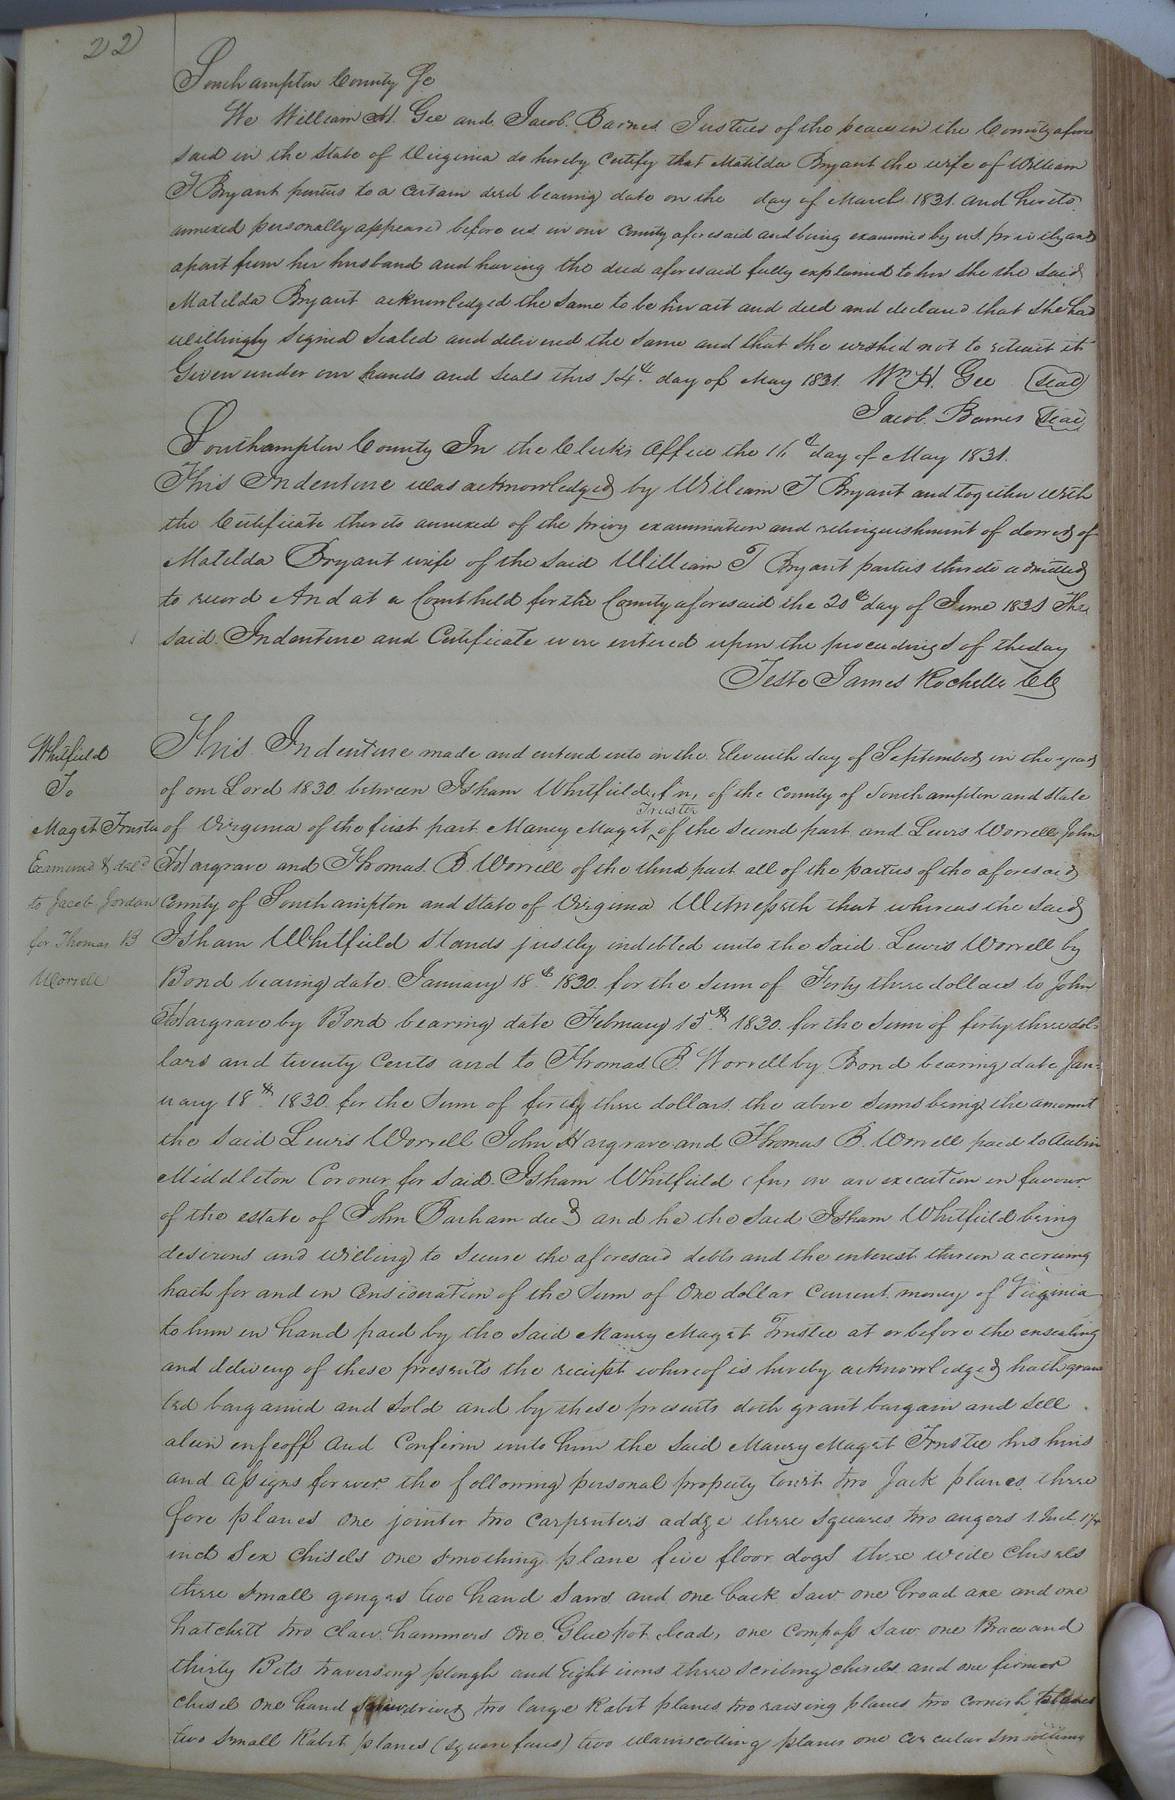 22
Southampton County Sc
We William H. Gee and Jacob Barnes Justices of the peace in the County afore
said in the State of Virginia do hereby certify that Matilda Bryant the wife of William
T Bryant parties to a certain deed bearing date on the day of March 1831. and hereto
annexed personally appeared before us in our County aforesaid and being examined by us privily and
apart from her husband and having the deed aforesaid fully explained to her she the said
Matilda Bryant acknowledged the same to be her act and deed and declared that she had
willingly signed sealed and delivered the same and that she wished not to retract it
Given under our hands and seals this 14th day of May 1831. Wm H. Gee (Seal)
Jacob Barnes (Seal)
Southampton County In the Clerks Office the 16th day of May 1831.
This Indenture was acknowledged by William T Bryant and together with
the Certificate thereto annexed of the privy examination and relinquishment of dower of
Matilda Bryant wife of the said William T Bryant parties thereto admitted
to record And at a Court held for the County aforesaid the 20th day of June 1831 The
said Indenture and Certificate were entered upon the proceedings of the day
Teste James Rochelle CC
Whitfield
To
Magét Trustee
Examined & deld
to Jacob Jordan
for Thomas B
Worrell
This Indenture made and entered into on the Eleventh day of September in the year
of our Lord 1830 between Isham Whitfield, of the County of Southampton and State
of Virginia of the first part Maney Magét Trustee of the second part and Lewis Worrell John
Hargrave and Thomas B. Worrell of the third part all of the parties of the aforesaid
County of Southampton and State of Virginia Witnesseth that whereas the said
Isham Whitfield stands justly indebted unto the said Lewis Worrell by
Bond bearing date January 18th 1830 for the sum of Forty three dollars to John
Hargrave by Bond bearing date February 15th 1830 for the sum of forty three dol-
lars and twenty Cents and to Thomas B. Worrell by Bond bearing date Jan-
uary 18th 1830 for the sum of forty three dollars the above sums being the amount
the said Lewis Worrell John Hargrave and Thomas B. Worrell paid to
Middleton Coroner for said Isham Whitfield on an execution in favour
of the estate of John Barham decd and he the said Isham Whitfield being
desirous and willing to secure the aforesaid debts and the interest thereon accruing
hath for and in Consideration of the sum of One dollar Current money of Virginia
to him in hand paid by the said Maney Magét Trustee at or before the ensealing
and delivery of these presents the receipt whereof is hereby acknowledged hath gran
ted bargained and sold and by these presents doth grant bargain and sell
alien enfeoff and Confirm unto him the said Maney Magét Trustee his heirs
and assigns forever the following personal property towit two Jack planes three
fore planes one jointer two Carpenters addze three squares two augers 1 Inch
inch Sex chisels one smothing plane five floor dogs three wide chisels
three small gouges two hand saws and one back saw one broad axe and one
hatchett two claw hammers One Gluepot lead, one Compass saw one Brace and
thirty Bits traversing plough and Eight irons three scribing chisels and one firmer
chisel one hand two large Rabit planes two raising planes two cornish
two small Rabit planes (square faces) two wainscotting planes one circular smoothing